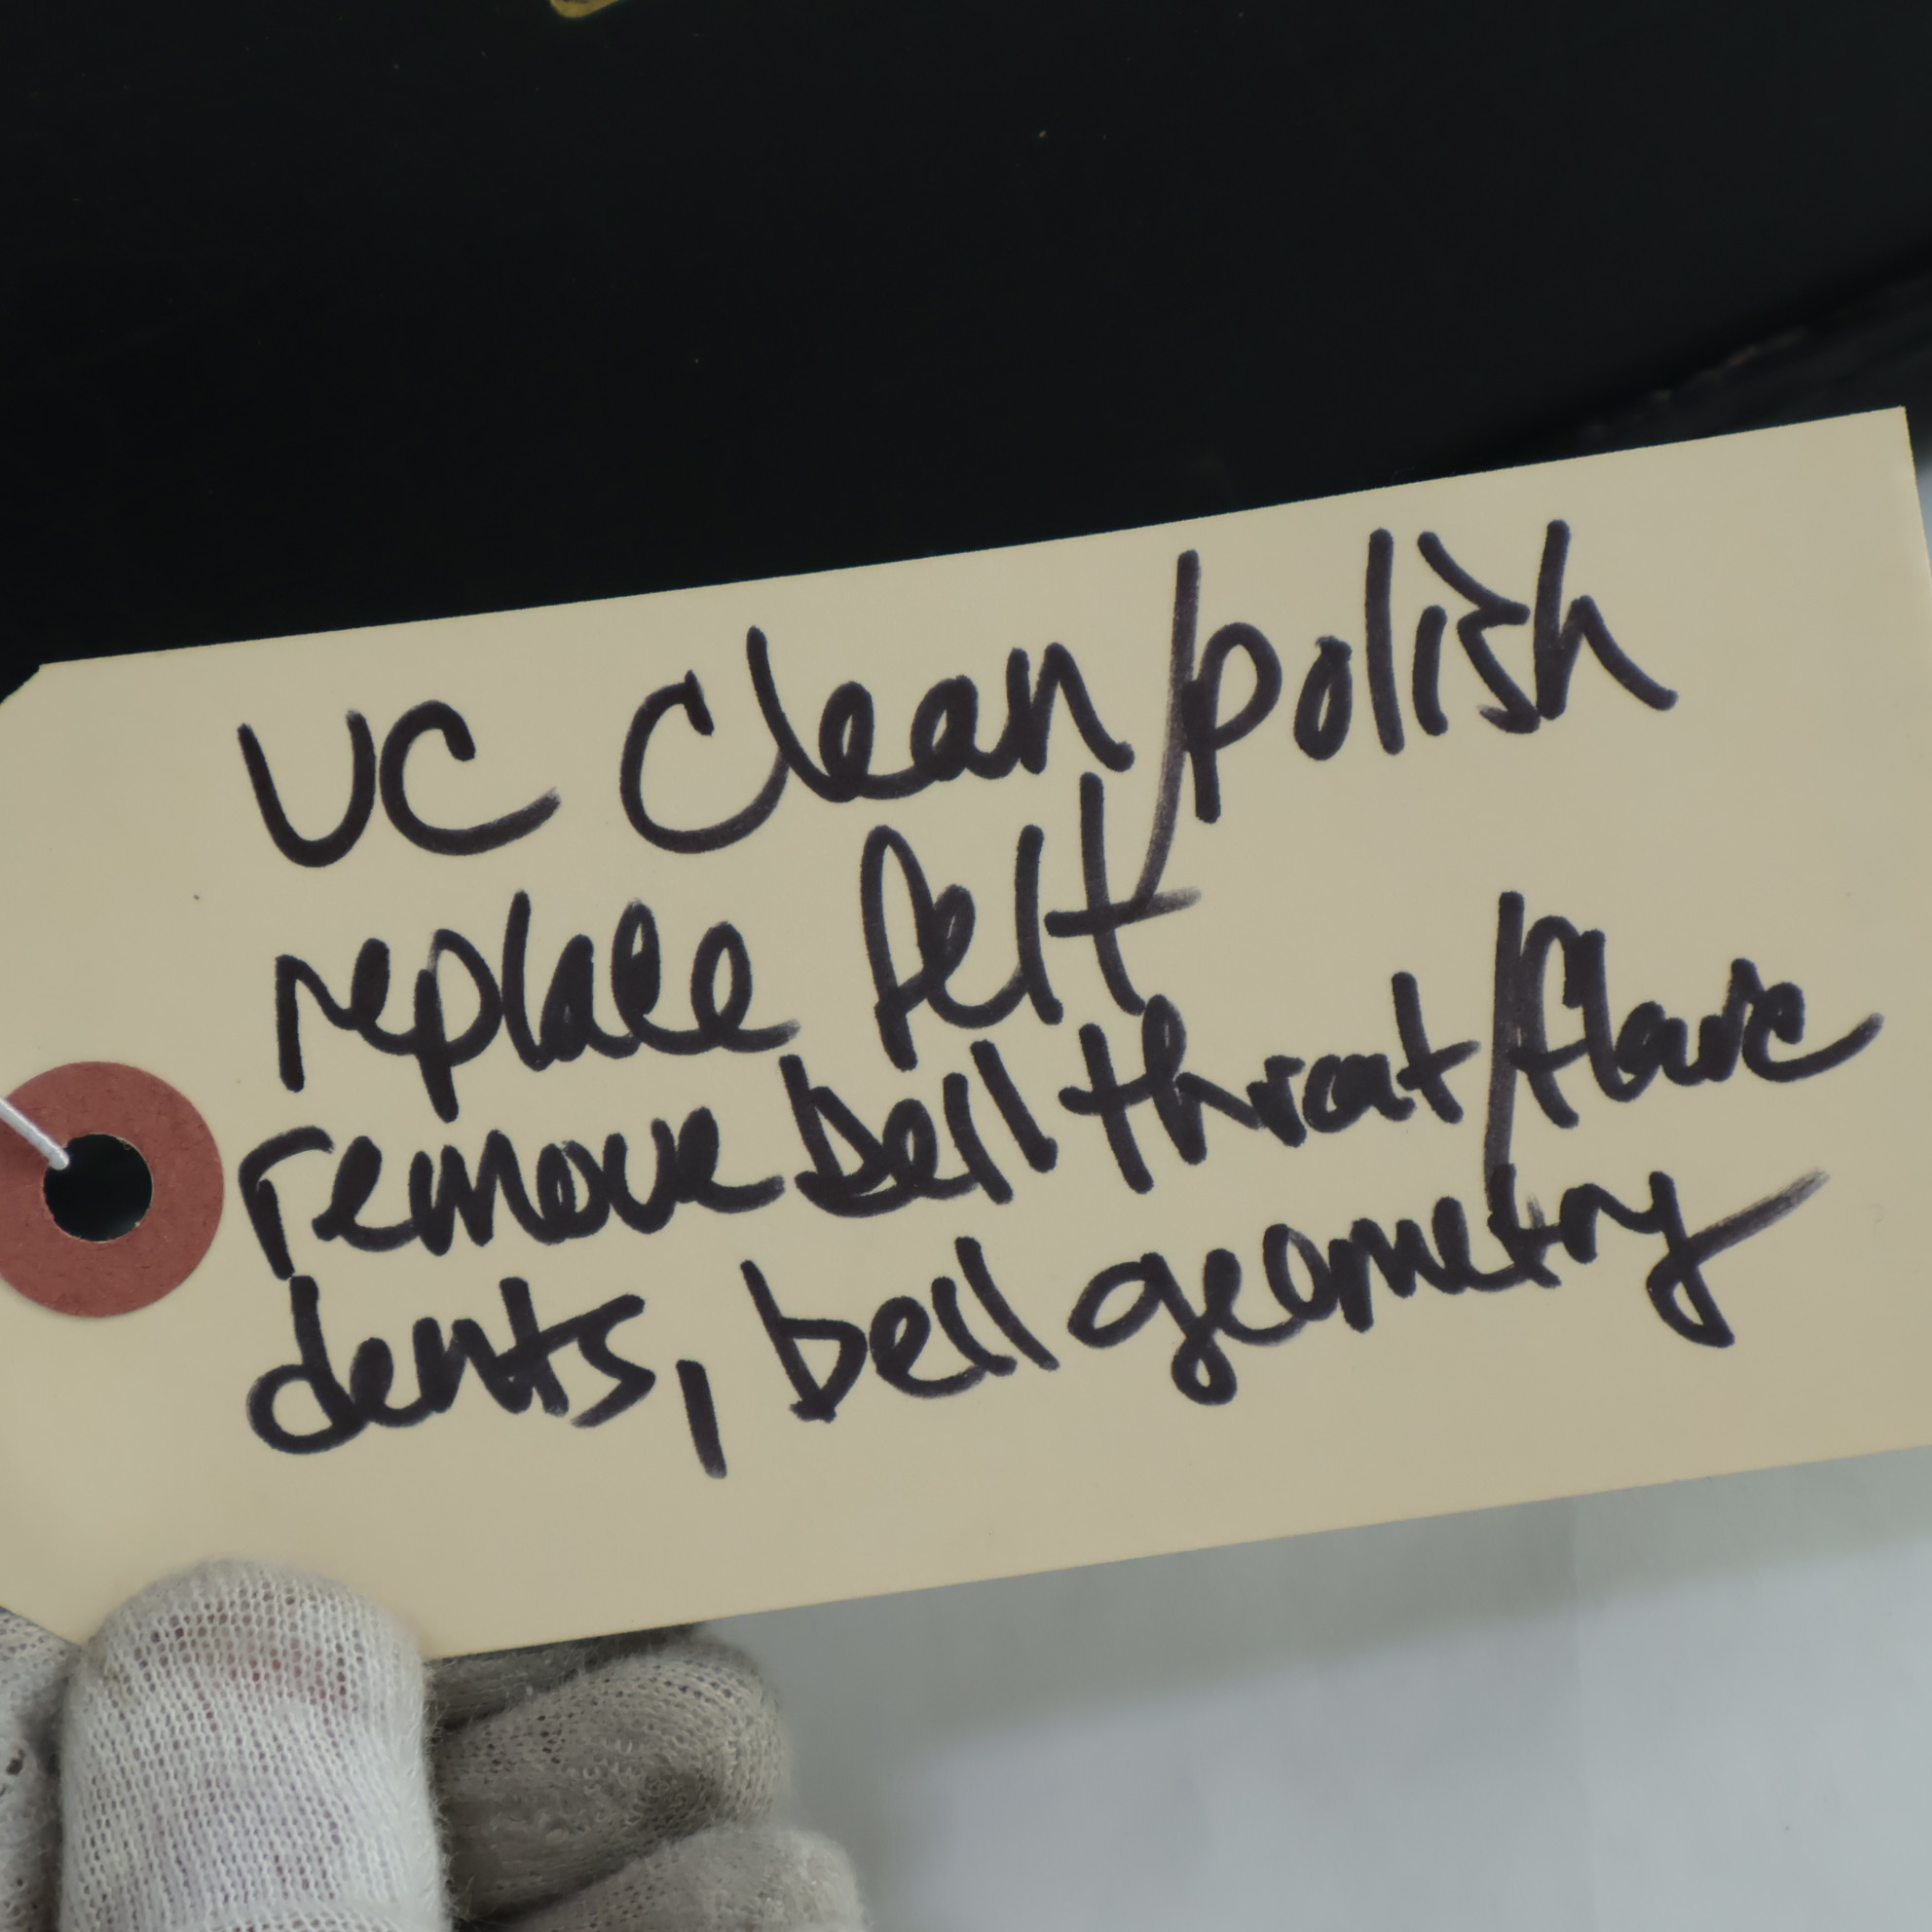 UC Clean/polish
replace felt
remove bell throat/flare
dents, bell geometry